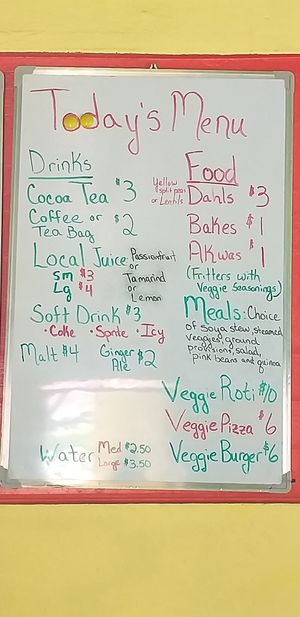 Today's Menu
Drinks
Cocoa Tea $3
Coffee or
Tea Bag $2
Local Juice
Sm $3
Lg $4
Passionfruit
or
Tamarind
or
Lemon
Soft Drink $3
• Coke • Sprite • Icy
Malt $4
Ginger
Ale $2
Water Med $2.50
Large $3.50
Food
Yellow
split peas
or Lentils
Dahls $3
Bakes $1
Akwas $1
(Fritters with
Veggie Seasonings)
Meals: Choice
of soya stew, steamed
veggies, ground
provisions, salad,
pink beans and quinoa
Veggie Roti $10
Veggie Pizza $6
Veggie Burger $6